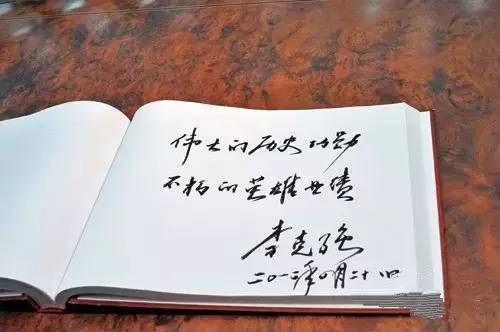 伟大的历史功勋
不朽的英雄业绩
李克强
二〇一三年四月二十